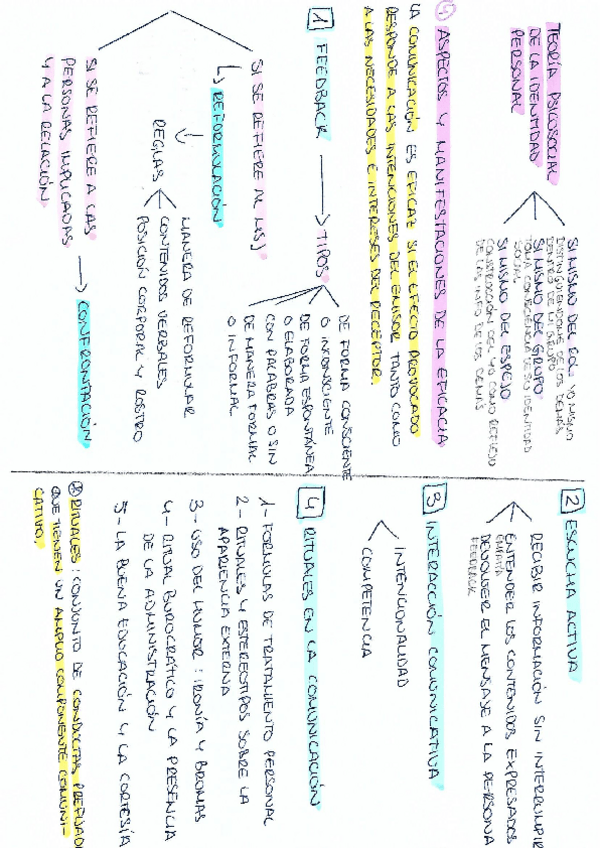 TEORÍA PSICOSOCIAL
DE LA IDENTIDAD
PERSONAL
SI MISMO DEL ROL YO MISMO
DISTINGUIENDOME DE LOS DEMÁS
DENTRO DE UN GRUPO
SI MISMO DEL GRUPO
TOMA CONCIENCIA DE SU IDENTIDAD
SOCIAL
SI MISMO DEL ESPEJO
CONSTRUCCIÓN DEL YO COMO REFLEJO
DE LAS INFO DE LOS DEMÁS
ASPECTOS Y MANIFESTACIONES DE LA EFICACIA
LA COMUNICACIÓN ES EFICAZ SI EL EFECTO PROVOCADO
RESPONDE A LAS INTENCIONES DEL EMISOR TANTO COMO
A LAS NECESIDADES E INTERESES DEL RECEPTOR.
1 FEEDBACK → TIPOS
DE FORMA CONSCIENTE
O INCONSCIENTE
DE FORMA ESPONTÁNEA
O ELABORADA
CON PALABRAS O SIN
DE MANERA FORMAL
O INFORMAL
SI SE REFIERE AL MSJ
↳ REFORMULACIÓN
↓
REGLAS
MANERA DE REFORMULAR
CONTENIDOS VERBALES
POSICIÓN CORPORAL Y ROSTRO
SI SE REFIERE A LAS
PERSONAS IMPLICADAS → CONFRONTACIÓN
Y A LA RELACIÓN
2 ESCUCHA ACTIVA
RECIBIR INFORMACIÓN SIN INTERRUMPIR
ENTENDER LOS CONTENIDOS EXPRESADOS
EMPATÍA
DEVOLVER EL MENSAJE A LA PERSONA
FEEDBACK
3 INTERACCIÓN COMUNICATIVA
INTENCIONALIDAD
COMPETENCIA
4 RITUALES EN LA COMUNICACIÓN
1- FORMULAS DE TRATAMIENTO PERSONAL
2- RITUALES Y ESTEREOTIPOS SOBRE LA
APARIENCIA EXTERNA
3- USO DEL HUMOR: IRONÍA Y BROMAS
4- RITUAL BUROCRÁTICO Y LA PRESENCIA
DE LA ADMINISTRACIÓN
5- LA BUENA EDUCACIÓN Y LA CORTESÍA
RITUALES: CONJUNTO DE CONDUCTAS PREFIJAD
QUE TIENEN UN AMPLIO COMPONENTE COMUNI-
CATIVO.